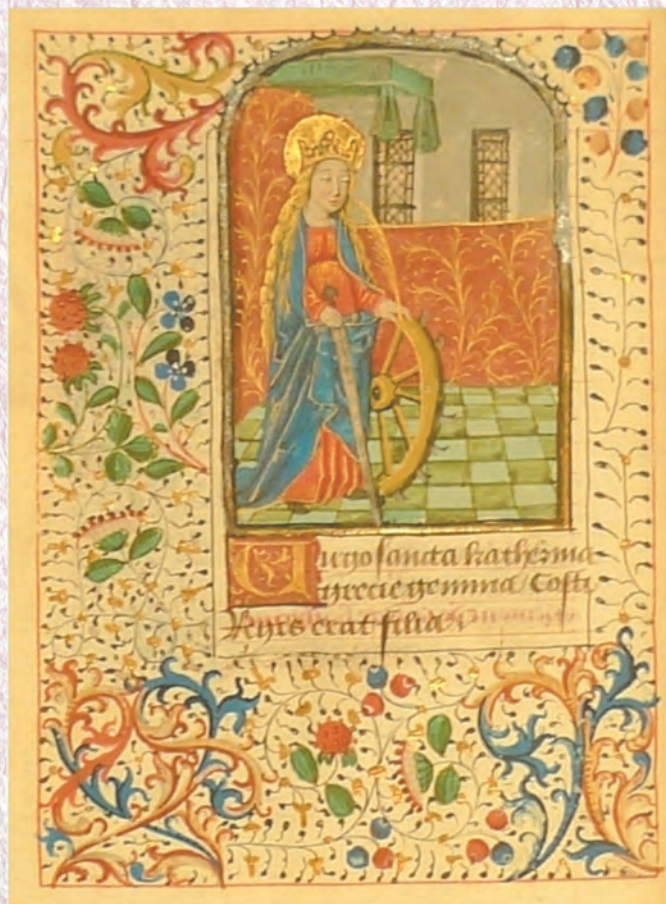 Uirgo sancta katherina
grecie gemma Costi
Regis erat filia